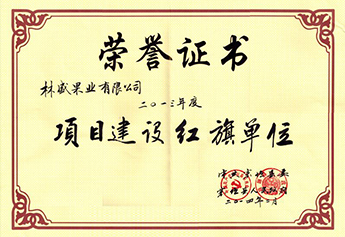 荣誉证书
林盛果业有限公司
二〇一三年度
項目建设红旗单位
二〇一四年二月